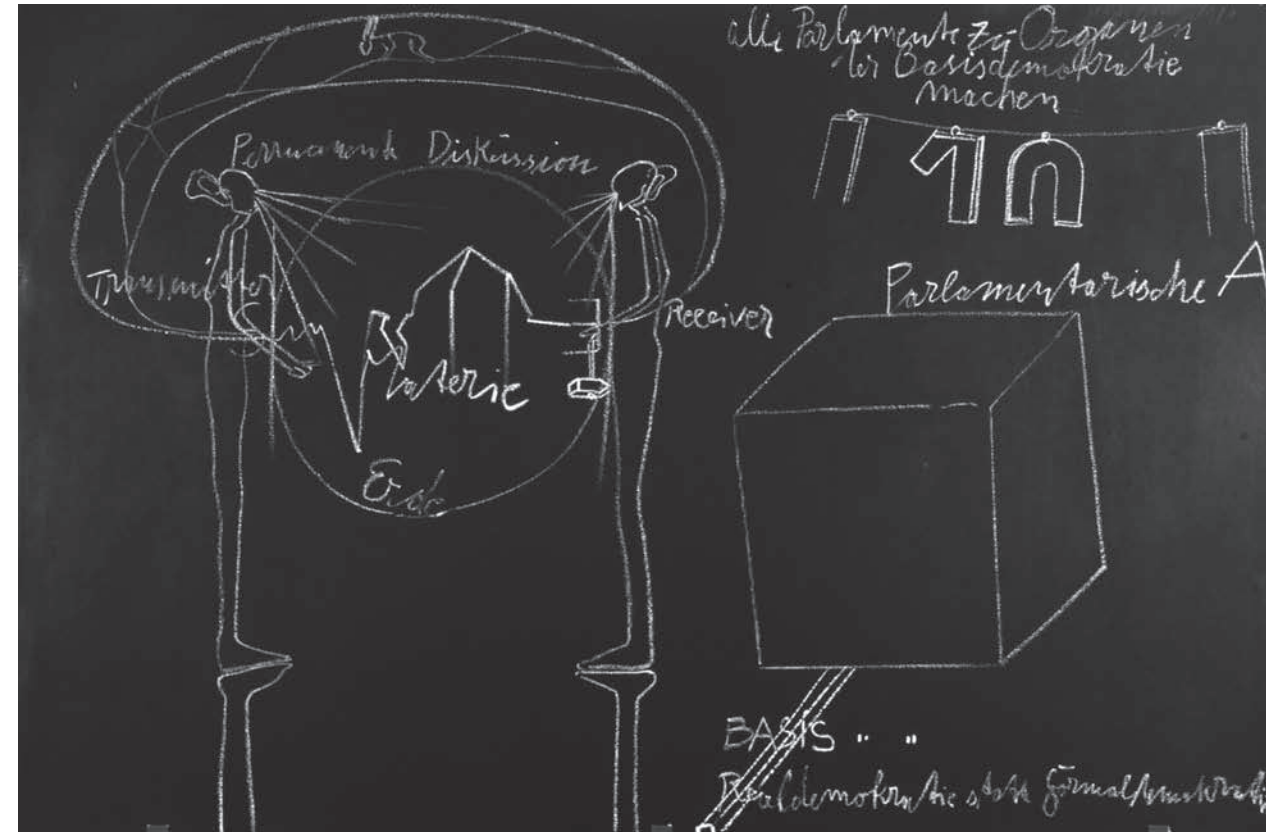 alle Parlamente zu Organen
der Basisdemokratie
machen
10
Permanente Diskussion
Transmitter
Receiver
Materie
Erde
Parlamentarische A
BASIS " "
Realdemokratie statt Formaldemokratie